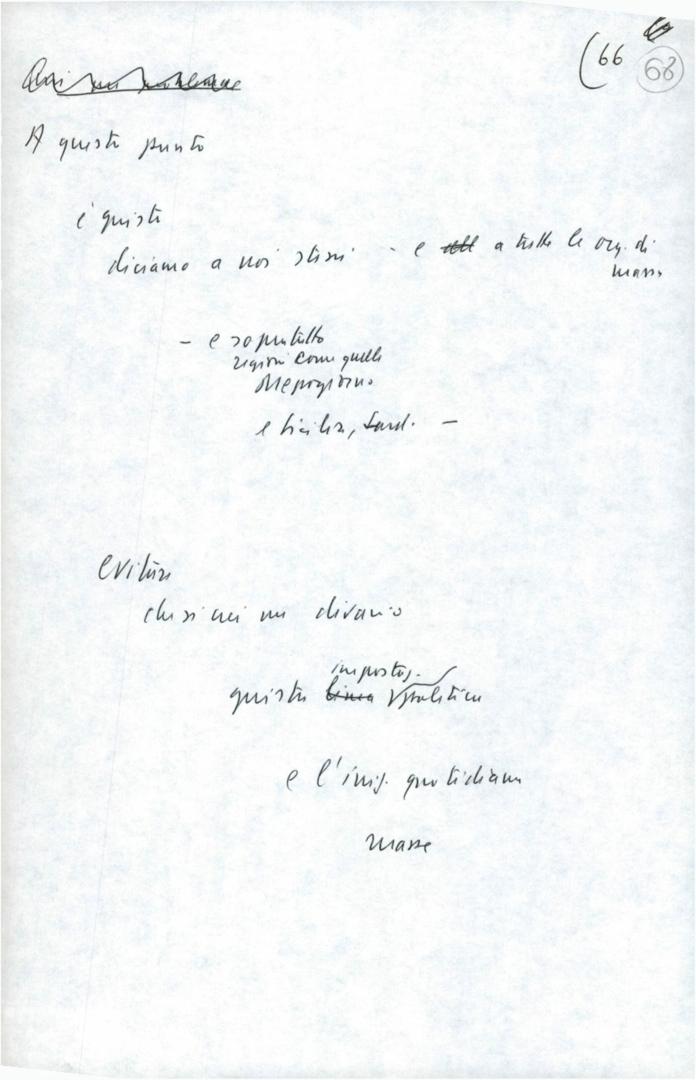 66
68
A questo punto
è questo
diciamo a noi stessi - e a tutte le org. di
massa
- e soprattutto
regioni come quelle
Mezzogiorno
e Sicilia, Sard. -
evitare
che si crei un divario
impostaz.
questa linea politica
e l'iniz. quotidiana
masse